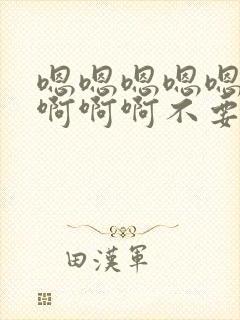 嗯嗯嗯嗯嗯
啊啊啊不要
田漢軍